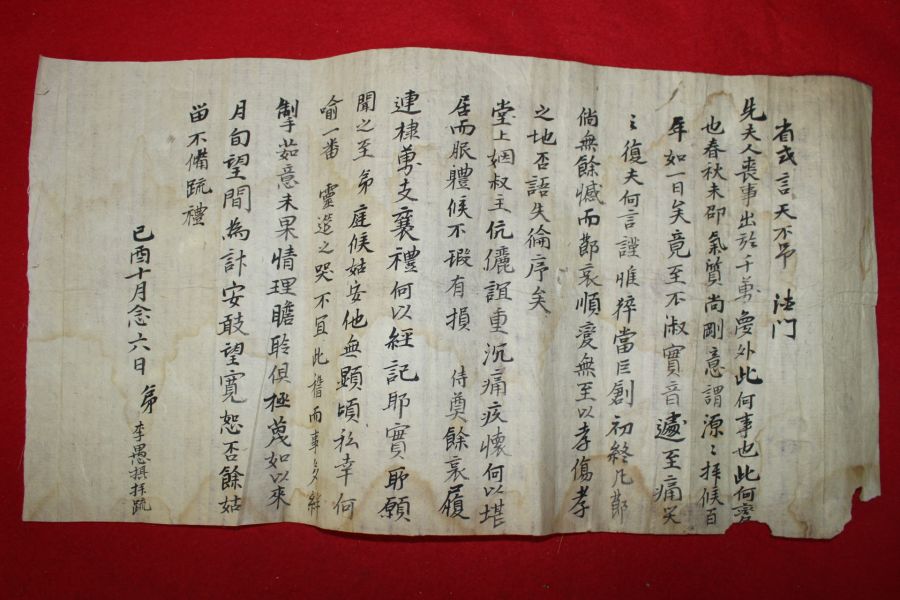 省式言天不弔 法門
先夫人喪事出於千萬夢外此何事也此何
也春秋未卲氣質尚剛意謂源〻拜候百
年如一日矣竟至不淑實音遽至痛哭
〻復夫何言謹惟猝當巨創初終凡節
倘無餘憾而節哀順変無至以孝傷孝
之地否語失倫序矣
堂上姻叔主伉儷誼重沉痛疚懷何以堪
居而服軆候不瑕有損 侍奠餘哀履
連棣萬支襄禮何以經記耶實所願
聞之至弟庭候姑安他無顕頃私幸何
喻一番 靈筵之哭不宜此稽而事多絆
掣茹意未果情理瞻聆俱極蔑如以來
月旬望間為計安敢望寬恕否餘姑
畄不備䟽禮
己酉十月念六日 弟 李愚 拜䟽